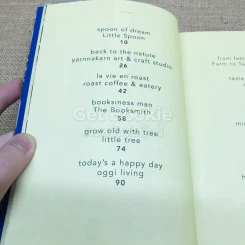 spoon of dream
Little Spoon
10
back to the nature
yarnnakarn art & craft studio
26
la vie en roast
roast coffee & eatery
42
booksiness man
The Booksmith
58
grow old with tree
little tree
74
today's a happy day
oggi living
90
from
Farm to
taste